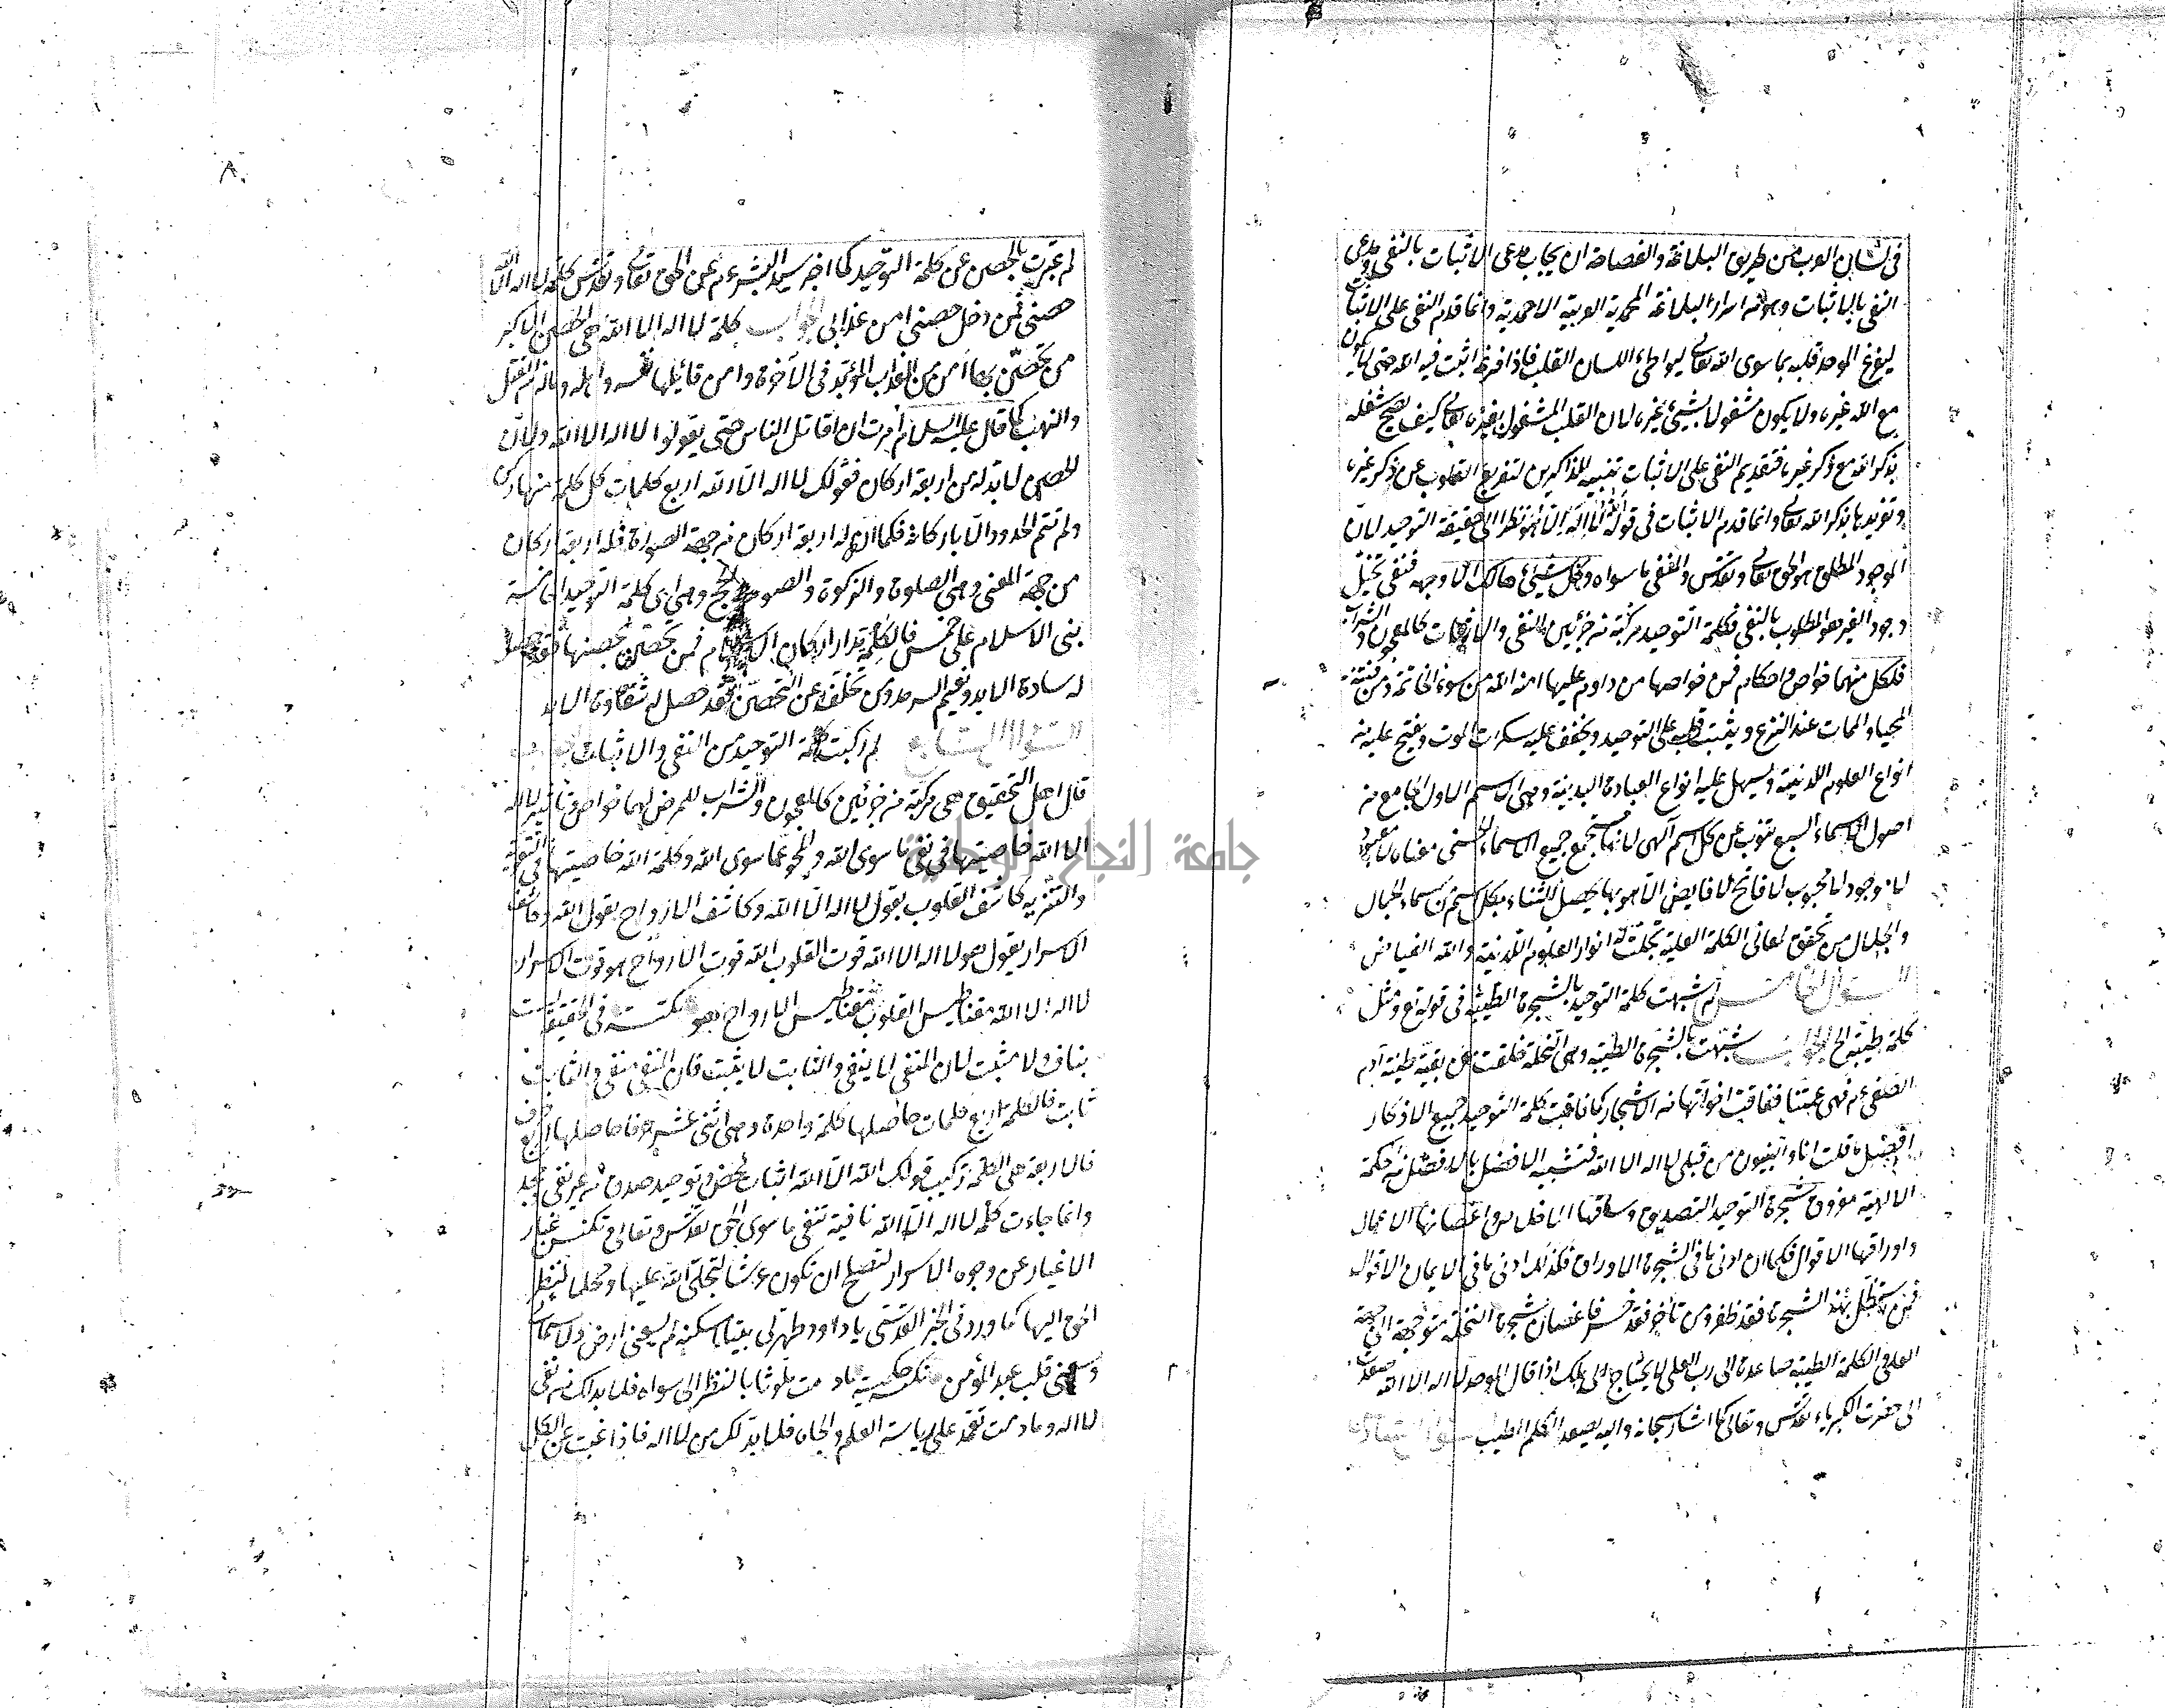 في لسان العرب من طريق البلاغة والفصاحة ان يجاب مدعى الاثبات بالنفى ومدعى
النفى بالاثبات وهو من اسرار البلاغة المحمدية العربية الاحمدية وانما قدم النفى على الاثبات
ليفرغ الموحد قلبه مما سوى الله تعالى ليواطئ اللسان القلب فاذا فرغ اثبت فيه الله حتى لا يكون
مع الله غيره ولا يكون مشغولا بشيئ غيره لان القلب المشغول بغيره تعالى كيف يصح شغله
بذكر الله مع ذكر غيره فتقديم النفى على الاثبات تنبيه للذاكرين لتفريغ القلوب عن ذكر غيره
وتفريدها بذكر الله تعالى وانما قدم الاثبات في قوله الله لا اله الا هو نظرا الى حقيقة التوحيد لان
الموجود المطلق هو الحق تعالى وتقدس والنفى ما سواه وكل شيئ هالك الا وجهه فنفى تخيل
وجود الغير هو المطلوب بالنفى فكلمة التوحيد مركبة من جزئين النفى والاثبات كالمعجون والشراب
فلكل منهما خواص واحكام فمن خواصها من داوم عليها امنه الله من سوء الخاتمة ومن فتنة
المحيا والممات عند النزع ويثبت قلبه على التوحيد ويخفف عليه سكرات الموت ويفتح عليه من
انواع العلوم اللدنية ويسهل عليه انواع العبادة البدنية وهى الاسم الاول الجامع من
اصول الاسماء السبع تنوب عن كل اسم آلهى لانها تجمع جميع الاسماء الحسنى معناه لا معبود
لا موجود لا محبوب لا فاتح لا فايض الا هو بها يحصل الثناء بكل اسم من اسماء الجمال
والجلال من تحقق لمعانى الكلمة العلية تجلت له انوار العلوم اللدنية والله الفياض
السؤال الخامس لم شبهت كلمة التوحيد بالشجرة الطيبة في قوله تع ومثل
كلمة طيبة الخ الجواب شبهت بالشجرة الطيبة وهى النخلة خلقت من بقية طينة آدم
الصفى عم فهى عمتنا ففاقت اخواتها من الاشجار كما فاقت كلمة التوحيد جميع الاذكار
افضل ما قلت انا والنبيون من قبلى لا اله الا الله فتشبيه الافضل بالافضل من حكمة
الالهية فعروق شجرة التوحيد التصديق وساقها الاخلاص واغصانها الاعمال
واوراقها الاقوال فكما ان ادنى ما في الشجرة الاوراق فكذلك ادنى ما في الايمان الاقوال
فمن يستظل بهذه الشجرة فقد ظفر ومن تأخر فقد خسر فاغصان شجرة النخلة متوجهة الى جهة
العلو والكلمة الطيبة صاعدة الى رب العلى لا يحتاج الى ملك اذا قال الموحد لا اله الا الله صعدت
الى حضرت الكبرياء تقدس وتعالى كما اشار سبحانه واليه يصعد الكلم الطيب
لم عبرت بالحصن عن كلمة التوحيد كما اخبر سيد البشر عم عن الحق تعالى وتقدس كلمة لا اله الا الله
حصنى فمن دخل حصنى امن عذابى الجواب كلمة لا اله الا الله هى الحصن الاكبر
من تحصن بها امن من العذاب المؤبد في الآخرة وامن قائلها نفسه واهله وماله من القتل
والنهب كما قال عليه السلام امرت ان اقاتل الناس حتى يقولوا لا اله الا الله ولان
الحصن لا بد له من اربعة اركان فقولك لا اله الا الله اربع كلمات كل كلمة منها ركن
ولم تتم الحدود الا باركانه فكما ان له اربعة اركان من جهة الصورة فله اربعة اركان
من جهة المعنى وهى الصلوة والزكوة والصوم والحج وهى اى كلمة التوحيد الخامسة
بنى الاسلام على خمس فالكلمة مدار اركان الاسلام فمن تحصن بحصنها فقد حصل
له سعادة الابد ونعيم السرمد ومن تخلف عن التحصن فقد حصل له شقاوة الابد
السؤال السابع لم ركبت كلمة التوحيد من النفى والاثبات الجواب
قال اهل التحقيق هى مركبة من جزئين كالمعجون والشراب للمرض لهما خواص وتاثير لا اله
الا الله خاصيتها في نفى ما سوى الله والمحو عما سوى الله وكلمة الله خاصيتها في التنويه
والتنزيه كاشف القلوب بقول لا اله الا الله وكاشف الارواح بقول الله وكاشف
الاسرار بقول هو لا اله الا الله قوت القلوب الله قوت الارواح هو قوت الاسرار
لا اله الا الله مقناطيس القلوب الله مقناطيس الارواح هو نكتة في الحقيقة لست
بناف ولا مثبت لان المنفى لا ينفى والثابت لا يثبت فان المنفى منفى والثابت
ثابت فالكلمة اربع كلمات حاصلها كلمة واحدة وهى اثنى عشر حرفا حاصلها اربع حرف
فالاربعة هى الكلمة تركيب قولك الله الا الله اثبات محض وتوحيد صدق من غير نفى مجد
وانما جاءت كلمة لا اله الا الله نافية تنفى ما سوى الحق تقدس وتعالى تكنس غبار
الاغيار عن وجوه الاسرار لتصلح ان تكون عرشا لتجلى الله عليها ومحلا لنظر
الحق اليها كما ورد في الخبر القدسى يا داود طهر لى بيتا اسكنه لم يسعنى ارضى ولا سمائى
ووسعنى قلب عبد المؤمن نكتة حكمية ما دمت ملوثا بالنظر الى سواه فلا بد لك من نفى
لا اله وما دمت تعتمد على رياسة العلم والجاه فلا بد لك من لا اله فاذا غبت عن الكل
جامعة النجاح الوطنية